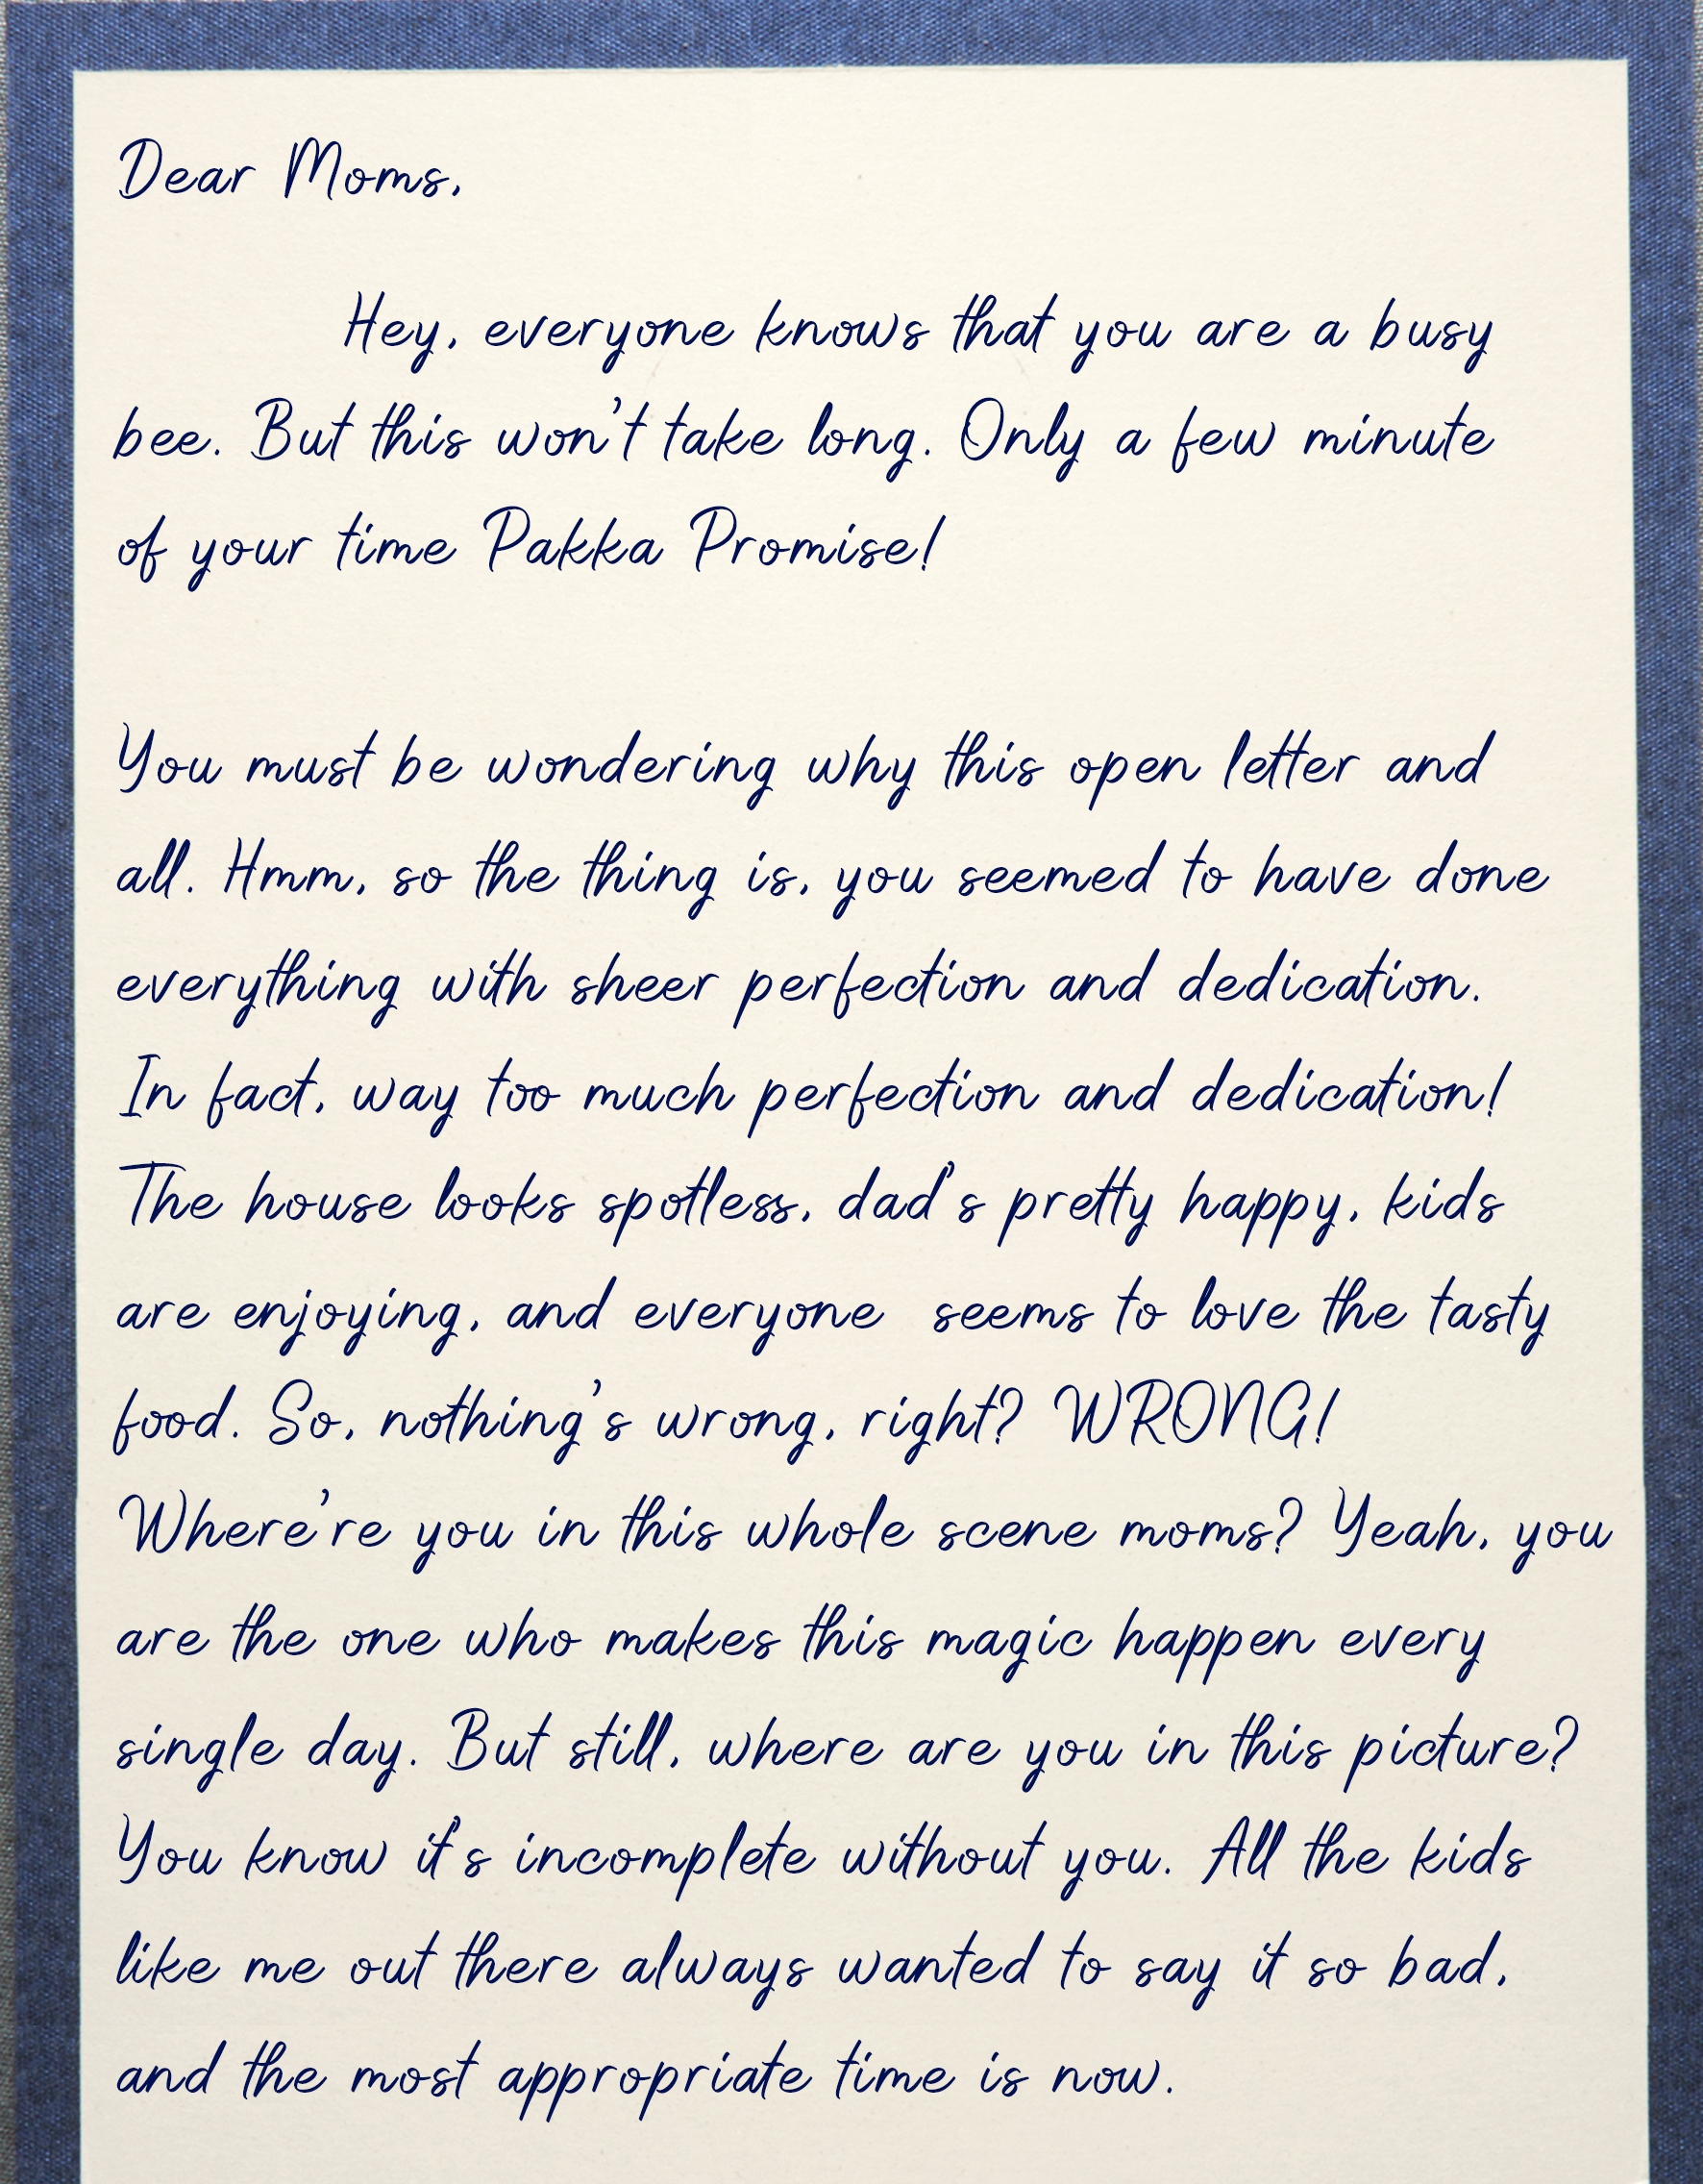 Dear Moms,
Hey, everyone knows that you are a busy
bee. But this won't take long. Only a few minute
of your time Pakka Promise!
You must be wondering why this open letter and
all. Hmm, so the thing is, you seemed to have done
everything with sheer perfection and dedication.
In fact, way too much perfection and dedication!
The house looks spotless, dad's pretty happy, kids
are enjoying, and everyone seems to love the tasty
food. So, nothing's wrong, right? WRONG!
Where're you in this whole scene moms? Yeah, you
are the one who makes this magic happen every
single day. But still, where are you in this picture?
You know it's incomplete without you. All the kids
like me out there always wanted to say it so bad,
and the most appropriate time is now.